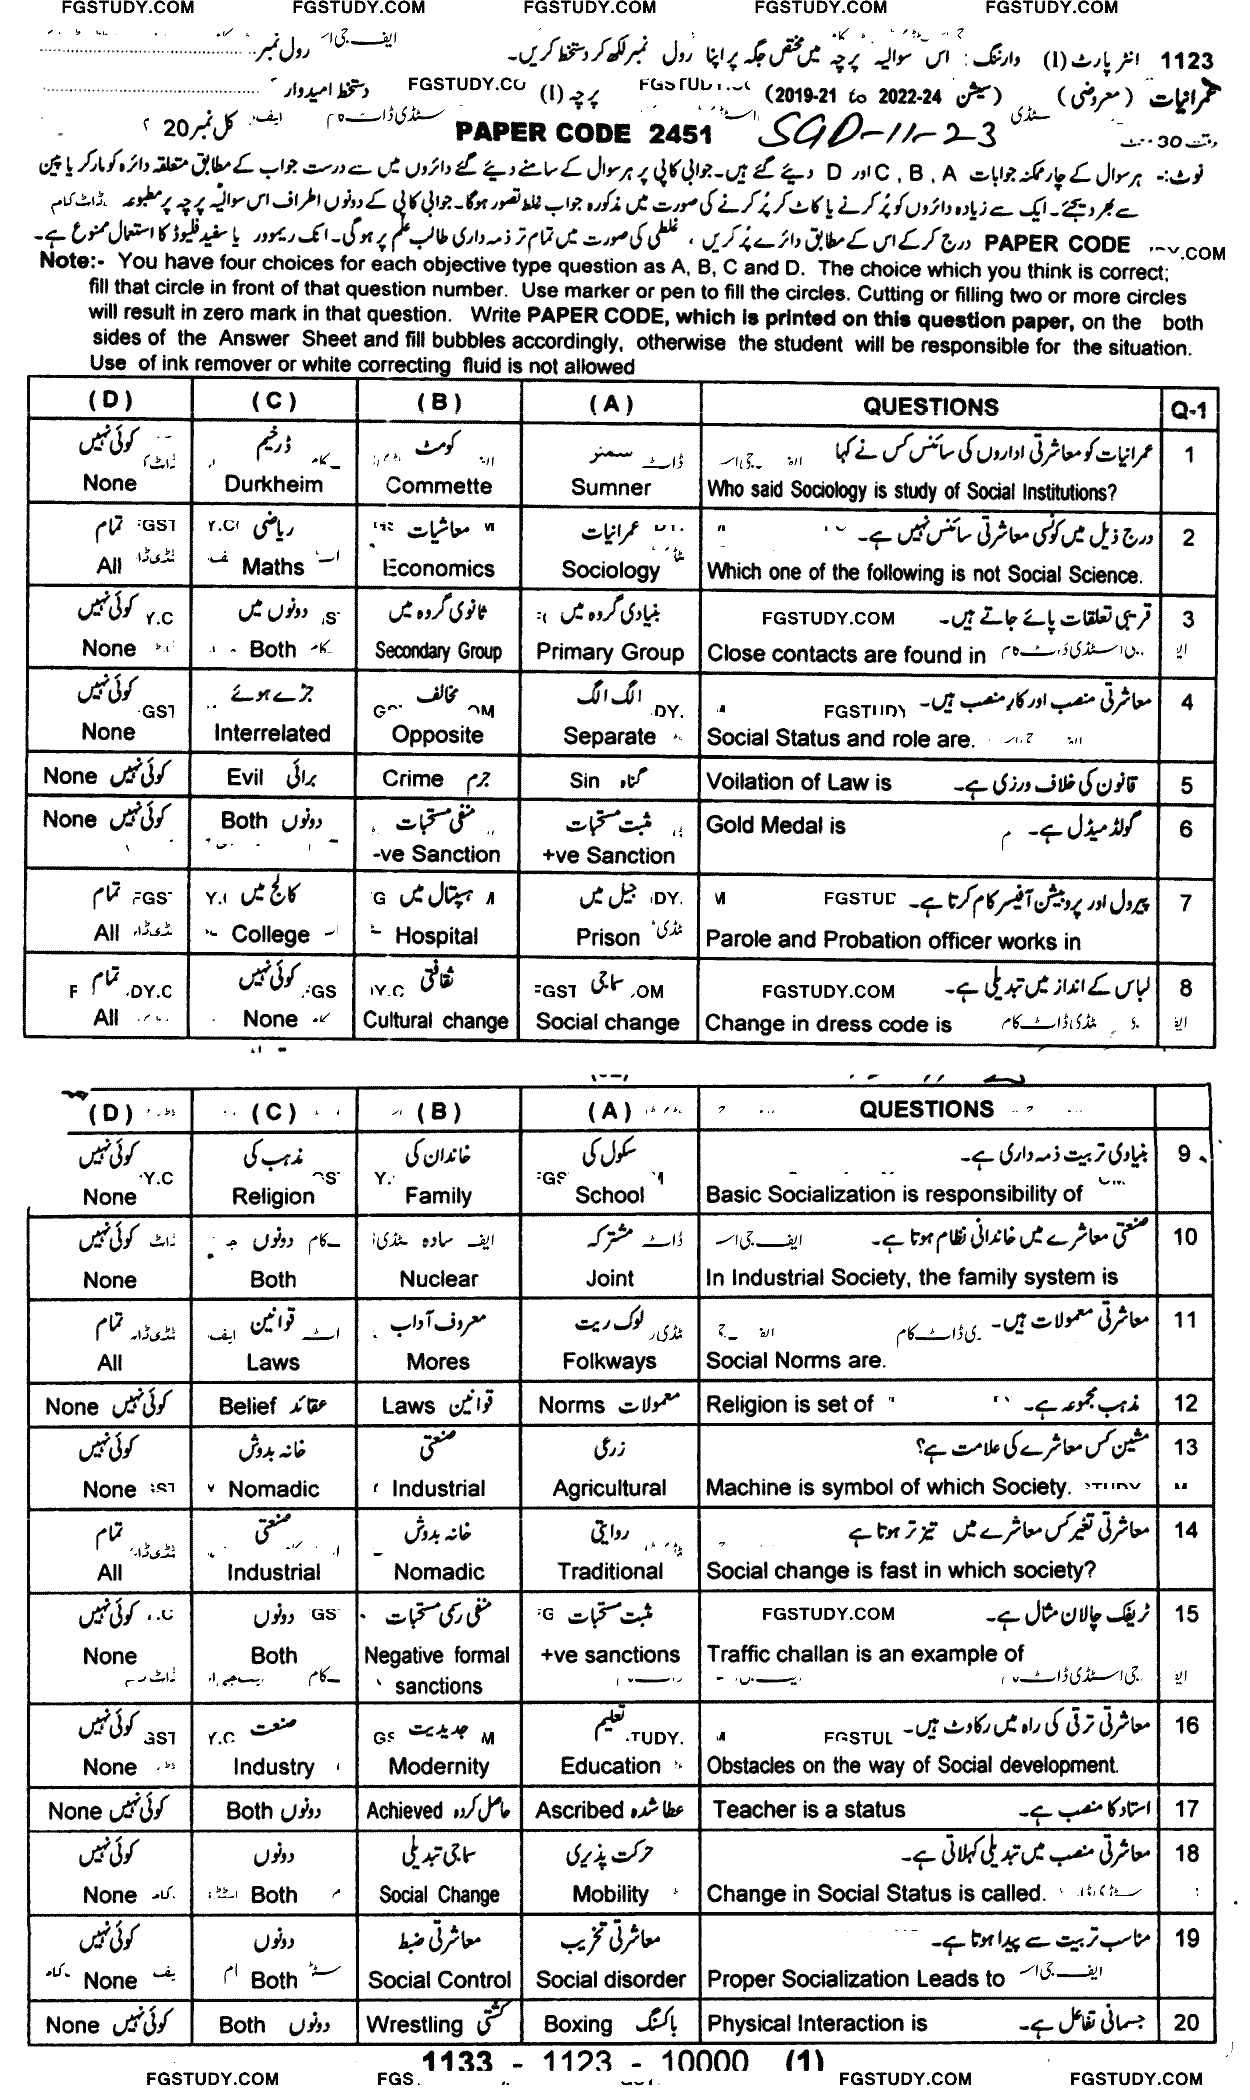 FGSTUDY.COM FGSTUDY.COM FGSTUDY.COM FGSTUDY.COM FGSTUDY.COM
1123 انٹر پارٹ (I) وارننگ: اس سوالیہ پرچہ میں مختص جگہ پر اپنا رول نمبر لکھ کر دستخط کریں۔ رول نمبر
عمرانیات (معروضی) (سیشن 2019-21 to 2022-24) پرچہ (I) دستخط امیدوار
وقت 30 منٹ SGD-11-23 PAPER CODE 2451 کل نمبر 20
نوٹ:- ہر سوال کے چار ممکنہ جوابات A ، B ، C اور D دیئے گئے ہیں۔ جوابی کاپی پر ہر سوال کے سامنے دیئے گئے دائروں میں سے درست جواب کے مطابق متعلقہ دائرہ کو مارکر یا پین
سے بھر دیجئے۔ ایک سے زیادہ دائروں کو پُر کرنے یا کاٹ کر پُر کرنے کی صورت میں مذکورہ جواب غلط تصور ہوگا۔ جوابی کاپی کے دونوں اطراف اس سوالیہ پرچہ پر مطبوعہ
PAPER CODE درج کر کے اس کے مطابق دائرے پُر کریں ، غلطی کی صورت میں تمام تر ذمہ داری طالب علم پر ہوگی۔ انک ریموور یا سفید فلیوڈ کا استعمال ممنوع ہے۔
Note:- You have four choices for each objective type question as A, B, C and D. The choice which you think is correct;
fill that circle in front of that question number. Use marker or pen to fill the circles. Cutting or filling two or more circles
will result in zero mark in that question. Write PAPER CODE, which is printed on this question paper, on the both
sides of the Answer Sheet and fill bubbles accordingly, otherwise the student will be responsible for the situation.
Use of ink remover or white correcting fluid is not allowed
(D) (C) (B) (A) QUESTIONS Q-1
کوئی نہیں درخیم کومٹ سمنر عمرانیات کو معاشرتی اداروں کی سائنس کس نے کہا 1
None Durkheim Commette Sumner Who said Sociology is study of Social Institutions?
تمام ریاضی معاشیات عمرانیات درج ذیل میں کونسی معاشرتی سائنس نہیں ہے۔ 2
All Maths Economics Sociology Which one of the following is not Social Science.
کوئی نہیں دونوں میں ثانوی گروہ میں بنیادی گروہ میں FGSTUDY.COM قریبی تعلقات پائے جاتے ہیں۔ 3
None Both Secondary Group Primary Group Close contacts are found in
کوئی نہیں جڑے ہوئے مخالف الگ الگ FGSTUDY معاشرتی منصب اور کار منصب ہیں۔ 4
None Interrelated Opposite Separate Social Status and role are.
None کوئی نہیں Evil برائی Crime جرم Sin گناہ Voilation of Law is قانون کی خلاف ورزی ہے۔ 5
None کوئی نہیں Both دونوں منفی مستحبات مثبت مستحبات Gold Medal is گولڈ میڈل ہے۔ 6
-ve Sanction +ve Sanction
تمام کالج میں ہسپتال میں جیل میں پیرول اور پروبیشن آفیسر کام کرتا ہے۔ 7
All College Hospital Prison Parole and Probation officer works in
تمام کوئی نہیں ثقافتی سماجی FGSTUDY.COM لباس کے انداز میں تبدیلی ہے۔ 8
All None Cultural change Social change Change in dress code is
(D) (C) (B) (A) QUESTIONS
کوئی نہیں مذہب کی خاندان کی سکول کی بنیادی تربیت ذمہ داری ہے۔ 9
None Religion Family School Basic Socialization is responsibility of
کوئی نہیں دونوں سادہ مشترکہ صنعتی معاشرے میں خاندانی نظام ہوتا ہے۔ 10
None Both Nuclear Joint In Industrial Society, the family system is
تمام قوانین معروف آداب لوک ریت معاشرتی معمولات ہیں۔ 11
All Laws Mores Folkways Social Norms are.
None کوئی نہیں Belief عقائد Laws قوانین Norms معمولات Religion is set of مذہب مجموعہ ہے۔ 12
کوئی نہیں خانہ بدوش صنعتی زرعی مشین کس معاشرے کی علامت ہے؟ 13
None Nomadic Industrial Agricultural Machine is symbol of which Society.
تمام صنعتی خانہ بدوش روایتی معاشرتی تغیر کس معاشرے میں تیز تر ہوتا ہے 14
All Industrial Nomadic Traditional Social change is fast in which society?
کوئی نہیں دونوں منفی رسمی مستحبات مثبت مستحبات FGSTUDY.COM ٹریفک چالان مثال ہے۔ 15
None Both Negative formal +ve sanctions Traffic challan is an example of
sanctions
کوئی نہیں صنعت جدیدیت تعلیم معاشرتی ترقی کی راہ میں رکاوٹ ہیں۔ 16
None Industry Modernity Education Obstacles on the way of Social development.
None کوئی نہیں Both دونوں Achieved حاصل کردہ Ascribed عطا شدہ Teacher is a status استاد کا منصب ہے۔ 17
کوئی نہیں دونوں سماجی تبدیلی حرکت پذیری معاشرتی منصب میں تبدیلی کہلاتی ہے۔ 18
None Both Social Change Mobility Change in Social Status is called.
کوئی نہیں دونوں معاشرتی ضبط معاشرتی تخریب مناسب تربیت سے پیدا ہوتا ہے۔ 19
None Both Social Control Social disorder Proper Socialization Leads to
None کوئی نہیں Both دونوں Wrestling کشتی Boxing باکسنگ Physical Interaction is جسمانی تفاعل ہے۔ 20
1133 - 1123 - 10000 (1)
FGSTUDY.COM FGS FGSTUDY.COM FGSTUDY.COM